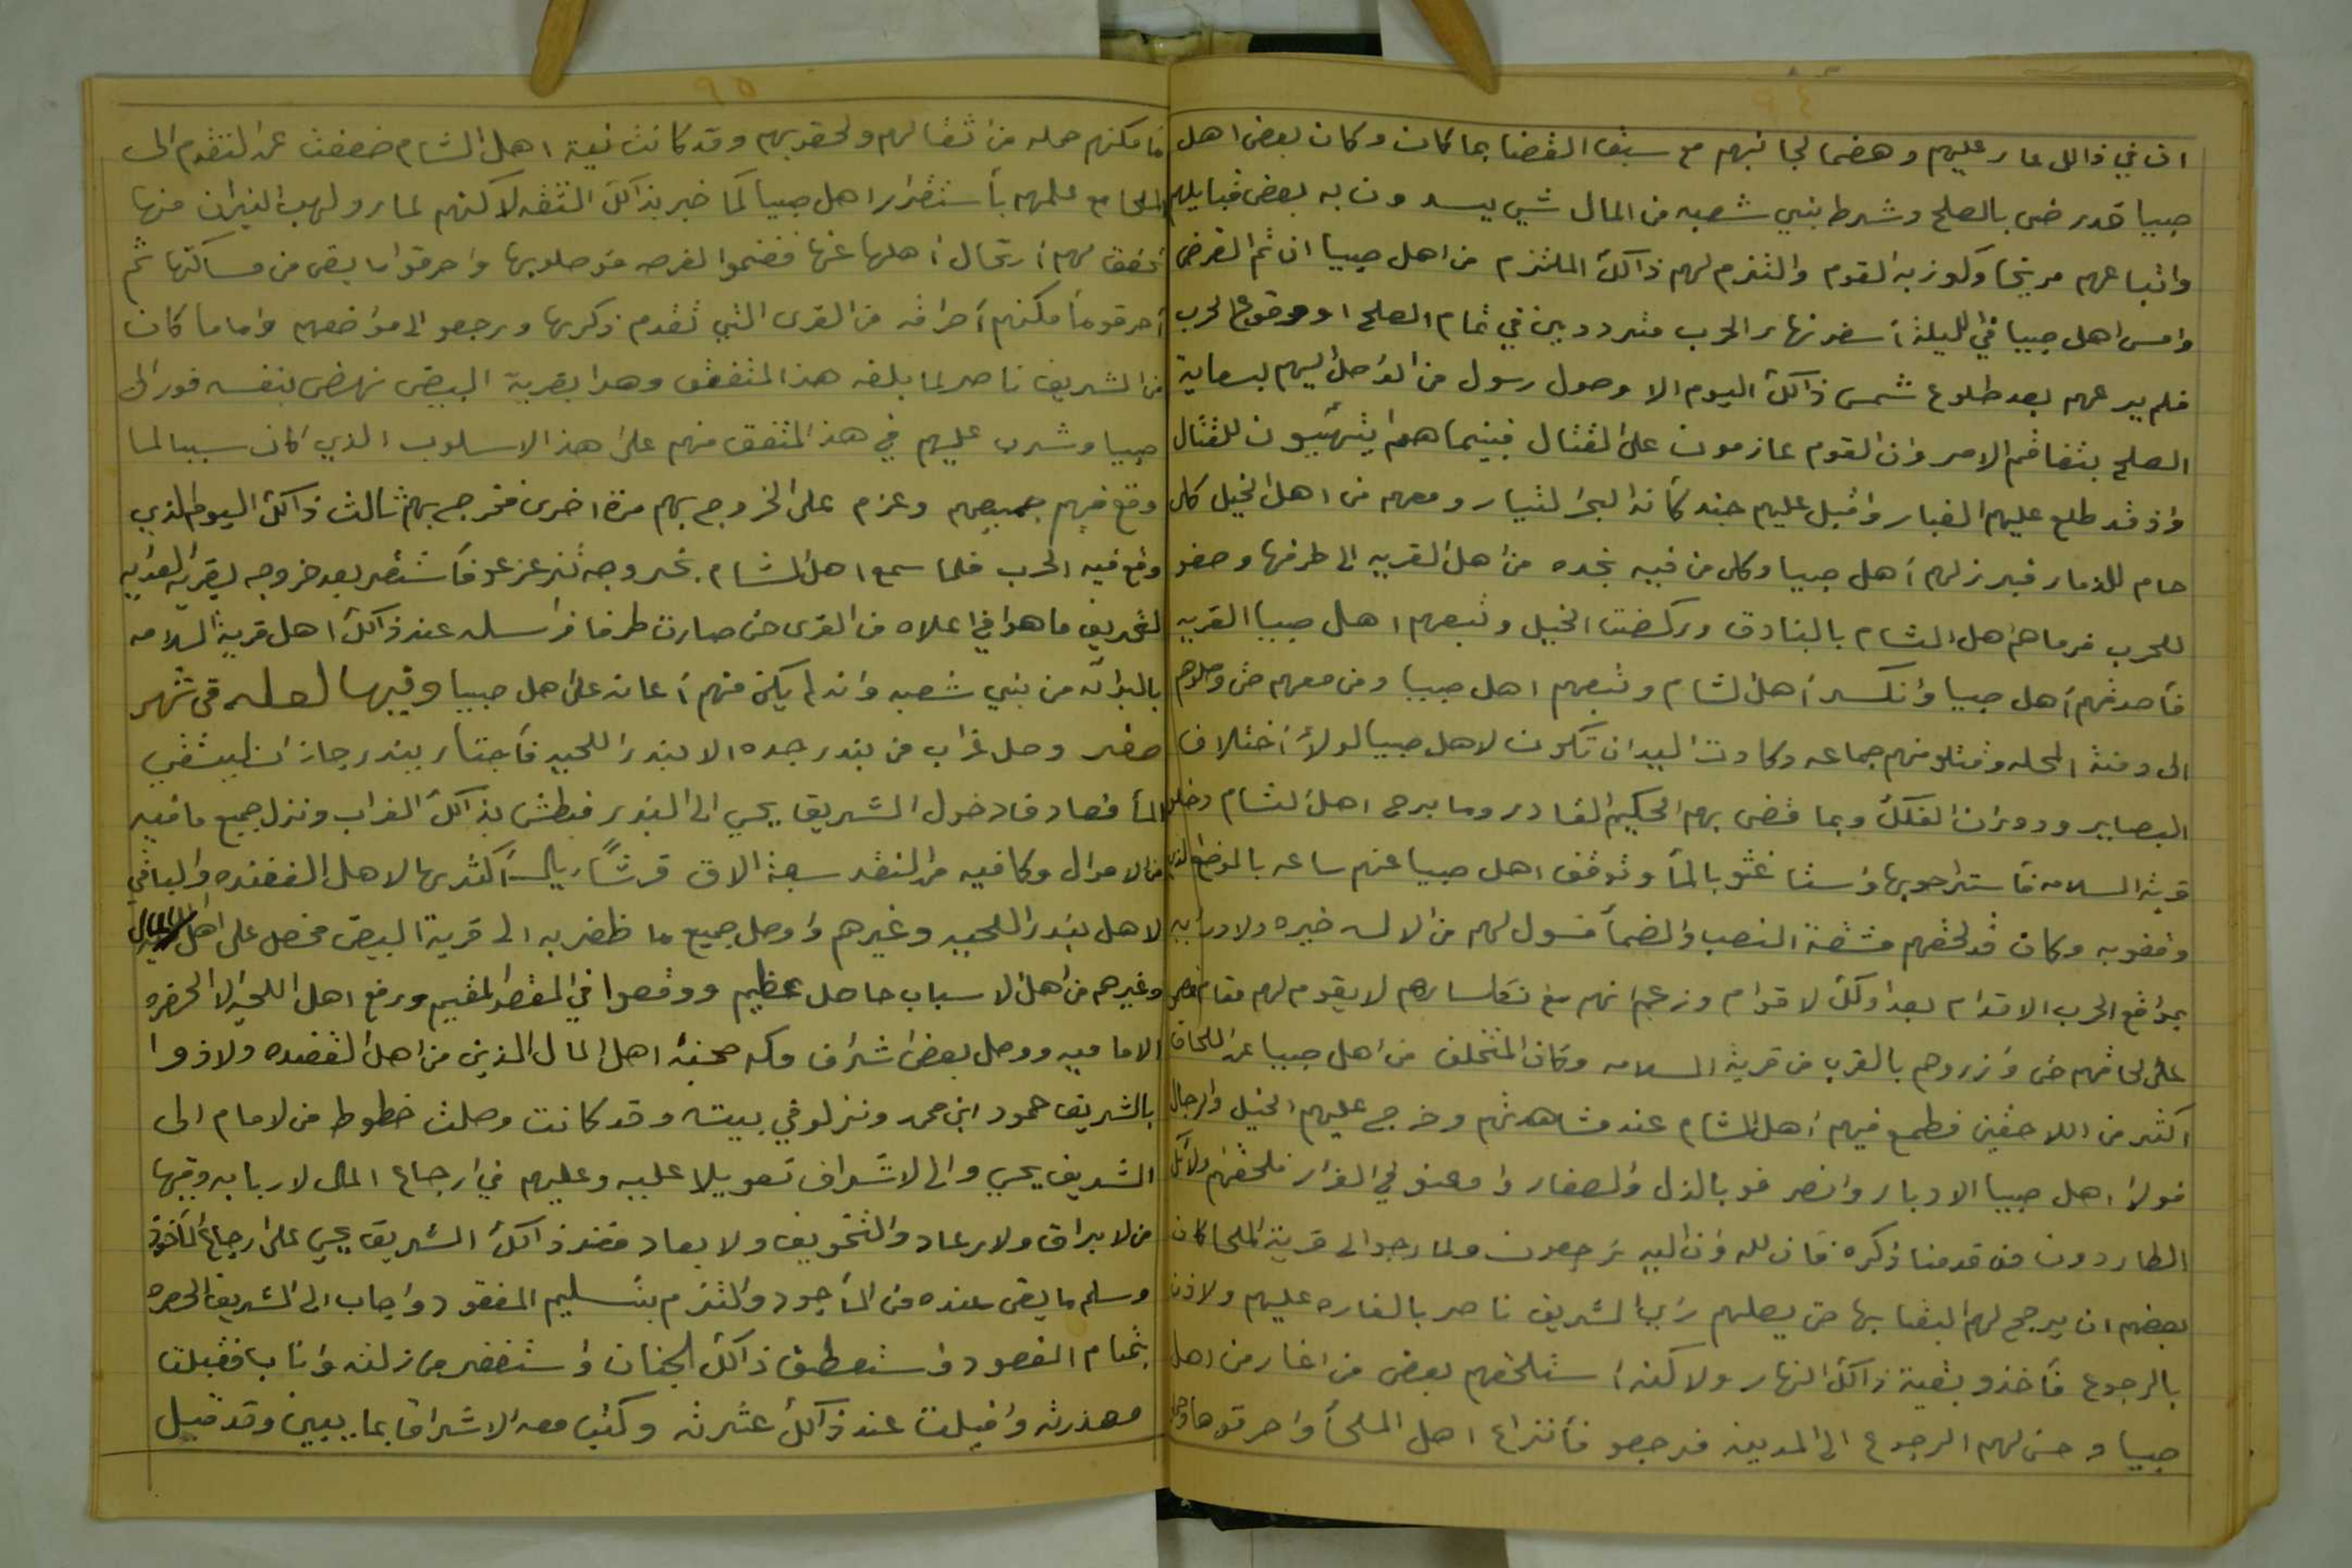 ٩٤
ان في ذالك عار عليهم وهضما لجانبهم مع سبق القضا بما كان وكان بعض اهل
صبيا قد رضى بالصلح وشرط بني شعبه من المال شي يسدون به بعض قبايلهم
واتباعهم مرتجا ولوز به القوم والتزم لهم ذالك الملتزم من اهل صبيا ان تم الغرض
وامسى اهل صبيا في الليلة أسفر نهار الحرب مترددين في تمام الصلح او وقوع الحرب
فلم يرعهم بعد طلوع شمس ذالك اليوم الا وصول رسول من الواصل اليهم بسعاية
الصلح بتفاقم الامر وان القوم عازمون على القتال فبينما هم يتهيبون للقتال
واذ قد طلع عليهم الغبار واقبل عليهم جند كأنه البحر التيار ومعهم من اهل الخيل كل
حام للذمار فبرز لهم أهل صبيا وكل من فيه نجده من اهل القريه الى طرفها وصفو
للحرب فرماهم اهل الشام بالبنادق وركضت الخيل وتبعهم اهل صبيا القريه
فأصدتهم أهل صبيا وانكسر أهل الشام وتبعهم اهل صبيا ومن معهم حتى وصلوهم
الى دمنة المحله وقتلو منهم جماعه وكادت اليد ان تكون لاهل صبيا لولا أختلاف
البصاير ودوران الفلك وبما قضى بهم الحكيم القادر وما برح اهل الشام دخلو
قرية السلامه فأستراحو بها واستاغثو بالمأ وتوقف اهل صبيا عنهم ساعه بالموضع الذي
وقفو به وكان قد لحقهم مشقة النصب والضمأ فسول لهم من لا له خبره ولا درايه
بمواقع الحرب الاقدام بعد اولئك الاقوام وزعم انهم مع نكسارهم لا يقوم لهم مقام فمضى
على لحاقهم حتى وازروهم بالقرب من قرية السلامه وكان المتخلف من اهل صبيا عن اللحاق
اكثر من اللاحقين فطمع فيهم أهل الشام عند مشاهدتهم وخرج عليهم الخيل والرجال
فولا اهل صبيا الادبار وانصرفو بالذل والصغار وامعنو في الفرار فلحقهم ولائك
الطاردون من قدمنا ذكره فان لله وان اليه نرجعون ولما رجعو الى قرية الملحا كان
بعضهم ان يرجح لهم البقا بها حتى يصلهم رأي الشريف ناصر بالغاره عليهم ولاذن
بالرجوع فأخذو بقية ذالك النهار ولاكنه استلحقهم بعض من اغار من اهل
صبيا وحسن لهم الرجوع الى المدينه فرجعو فأنتزاع اهل الملحأ واحرقوها وحملو
٩٥
ما مكنهم حمله من اثقالهم ولحقو بهم وقد كانت نية اهل الشام ضعفت عن التقدم الى
الملحا مع علمهم بأستقرار اهل صبيا كما خبر بذالك الثقه لاكنهم لما رو لهب النيران منها
تحقق لهم أرتحال أهلها عنها ففنموا الفرصه فوصلو بها واحرقوا ما بقى من مساكنها ثم
أحرقو ما مكنهم أحراقه من القرى التي تقدم ذكرها ورجعو الى مواضعهم واما ما كان
من الشريف ناصر لما بلغه هذا المتفق وهو بقرية البيض نهض بنفسه فورا الى
صبيا وشرب عليهم في هذ المتفق منهم على هذ الاسلوب الذي كان سببا لما
وقع فيهم جميعهم وعزم على الخروج بهم مرة اخرى فخرج بهم ثالث ذالك اليوم الذي
وقع فيه الحرب فلما سمع اهل الشام بخروجه تزعزعو فأستقر بعد خروجه بقرية العدايه
لتخريف ما هو في اعلاه من القرى حتى صارت طرفا فراسله عند ذالك اهل قرية السلامه
بالبرائه من بني شعبه وانه لم يكن منهم أعانه على اهل صبيا وفيها لعله في شهر
صفر وصل غراب من بندر جده الا بندر اللحيه فأجتاز ببندر جازان ليستقي
المأ فصادف دخول الشريف يحي الى البندر فبطش بذالك الغراب ونزل جميع ما فيه
من الاموال وكا فيه من النقد سبعة الاق قرشًا ريال أكثرها لاهل القنفده والباقي
لاهل بندر اللحيه وغيرهم واوصل جميع ما ظفر به الى قرية البيض فحصل على اهل المال
وغيرهم من اهل الاسباب حاصل عظيم ووقعوا في المقعد المقيم ورفع اهل اللحيه الا الحضره
الاماميه ووصل بعض اشراف مكه صحبة اهل المال الذين من اهل القنفده ولاذوا
بالشريف حمود ابن محمد ونزلو في بيته وقد كانت وصلت خطوط من لامام الى
الشريف يحي والى الاشراف تعويلا عليه وعليهم في ارجاع المال لاربابه وفيها
من لابراق ولارعاد والتخويف ولابعاد فعند ذالك الشريف يحي على ارجاع المأخوذ
وسلم ما بقى عنده من المأجود والتزم بتسليم المفقود واجاب الى الشريف الحضره
بتمام المقصود واستعطف ذالك الجناب واستغفر من زلته واناب فقبلت
معذرته واقيلت عند ذالك عثرته وكتب معه الاشراف بما يبين وقد قيل